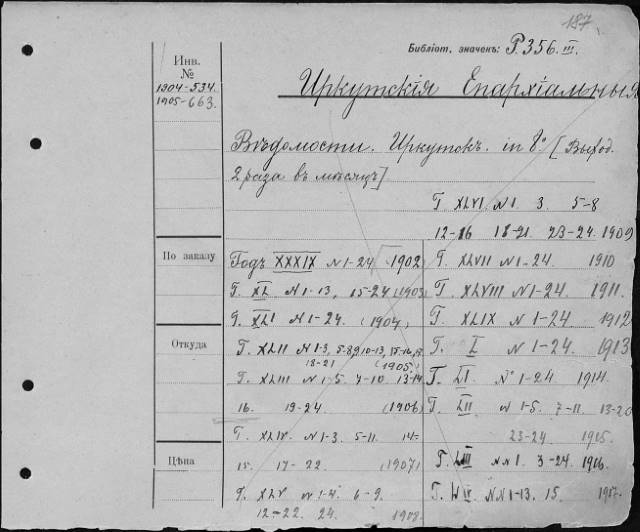 187
Библіот. значекъ: Р.356.III.
Инв.
№
1904-534
1905-663.
Иркутскія Епархіальныя
Вѣдомости. Иркутскъ. in 8º. [Выход.
2 раза въ мѣсяцъ]
Г. XLVI N 1 3. 5-8
12-16 18-21. 23-24. 1909
По заказу
Годъ XXXIX N 1-24 (1902)
Г. XL N 1-13, 15-24 (1903)
Г. XLI N 1-24. (1904)
Откуда
Г. XLII N 1-3, 5-8, 9,10-13, 15-16,
18-21 (1905)
Г. XLIII N 1-5. 7-10 13-14
16. 19-24 (1906)
Г. XLIV. N 1-3. 5-11. 14-
Цѣна
15. 17-22. (1907)
Г. XLV N 1-4. 6-9.
12-22. 24. 1908.
Г. XLVII N 1-24. 1910
Г. XLVIII N 1-24. 1911.
Г. XLIX N 1-24 1912
Г. L N 1-24. 1913
Г. LI. Nº 1-24 1914.
Г. LII N 1-5. 7-11. 13-20
23-24 1915.
Г. LIII NN 1. 3-24. 1916.
Г. LIV NN 1-13. 15. 1917.